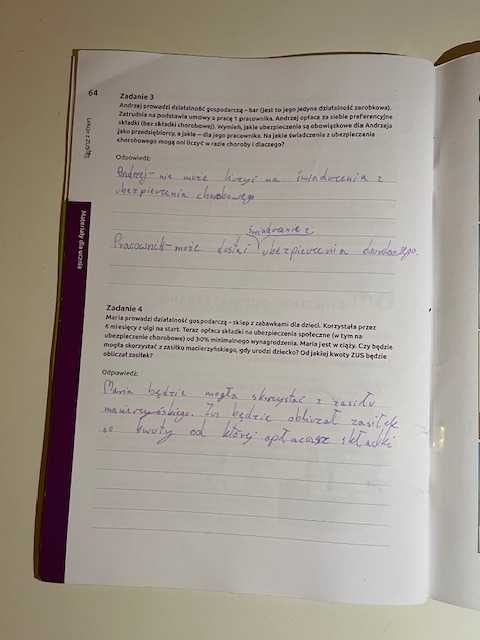 64
Zadanie 3
Andrzej prowadzi działalność gospodarczą – bar (jest to jego jedyna działalność zarobkowa).
Zatrudnia na podstawie umowy o pracę 1 pracownika. Andrzej opłaca za siebie preferencyjne
składki (bez składki chorobowej). Wymień, jakie ubezpieczenia są obowiązkowe dla Andrzeja
jako przedsiębiorcy, a jakie – dla jego pracownika. Na jakie świadczenia z ubezpieczenia
chorobowego mogą oni liczyć w razie choroby i dlaczego?
Odpowiedź:
Andrzej - nie może liczyć na świadczenia z
ubezpieczenia chorobowego
świadczenie z
Pracownik - może dostać ubezpieczenia chorobowego.
Zadanie 4
Maria prowadzi działalność gospodarczą – sklep z zabawkami dla dzieci. Korzystała przez
6 miesięcy z ulgi na start. Teraz opłaca składki na ubezpieczenia społeczne (w tym na
ubezpieczenie chorobowe) od 30% minimalnego wynagrodzenia. Maria jest w ciąży. Czy będzie
mogła skorzystać z zasiłku macierzyńskiego, gdy urodzi dziecko? Od jakiej kwoty ZUS będzie
obliczał zasiłek?
Odpowiedź:
Maria będzie mogła skorzystać z zasiłku
macierzyńskiego. Zus będzie obliczał zasiłek
kwoty od której opłacasz składki
Lekcje z ZUS
Materiały dla ucznia